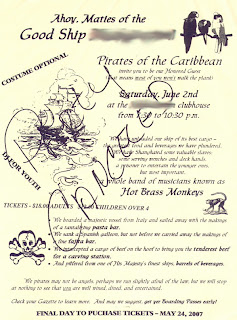 Ahoy, Matties of the
Good Ship
COSTUME OPTIONAL
Pirates of the Caribbean
invite you to be our Honored Guest
(that means most of you won't walk the plank)
Saturday, June 2nd
at the clubhouse
from 1:30 to 10:30 p.m.
our ship of its best cargo -
food and beverages we have plundered.
Shanghaied some valuable slaves:
some serving wenches and deck hands.
a prisoner to entertain the younger ones,
but most important.
whole band of musicians known as
Hot Brass Monkeys
TICKETS - $18.00 ADULTS CHILDREN OVER 4
We boarded a majestic vessel from Italy and sailed away with the makings
of a tantalizing pasta bar.
We sank a Spanish galleon, but not before we carried away the makings of
a fine fajita bar.
We intercepted a cargo of beef on the hoof to bring you the tenderest beef
for a carving station.
And pilfered from one of His Majesty's finest ships, barrels of beverages.
We pirates may not be angels, perhaps we run slightly afoul of the law, but we will stop
at nothing to see that you are well wined, dined, and entertained.
Check your Gazette to learn more. And may we suggest, get yer Boarding Passes early!
FINAL DAY TO PUCHASE TICKETS - MAY 24, 2007